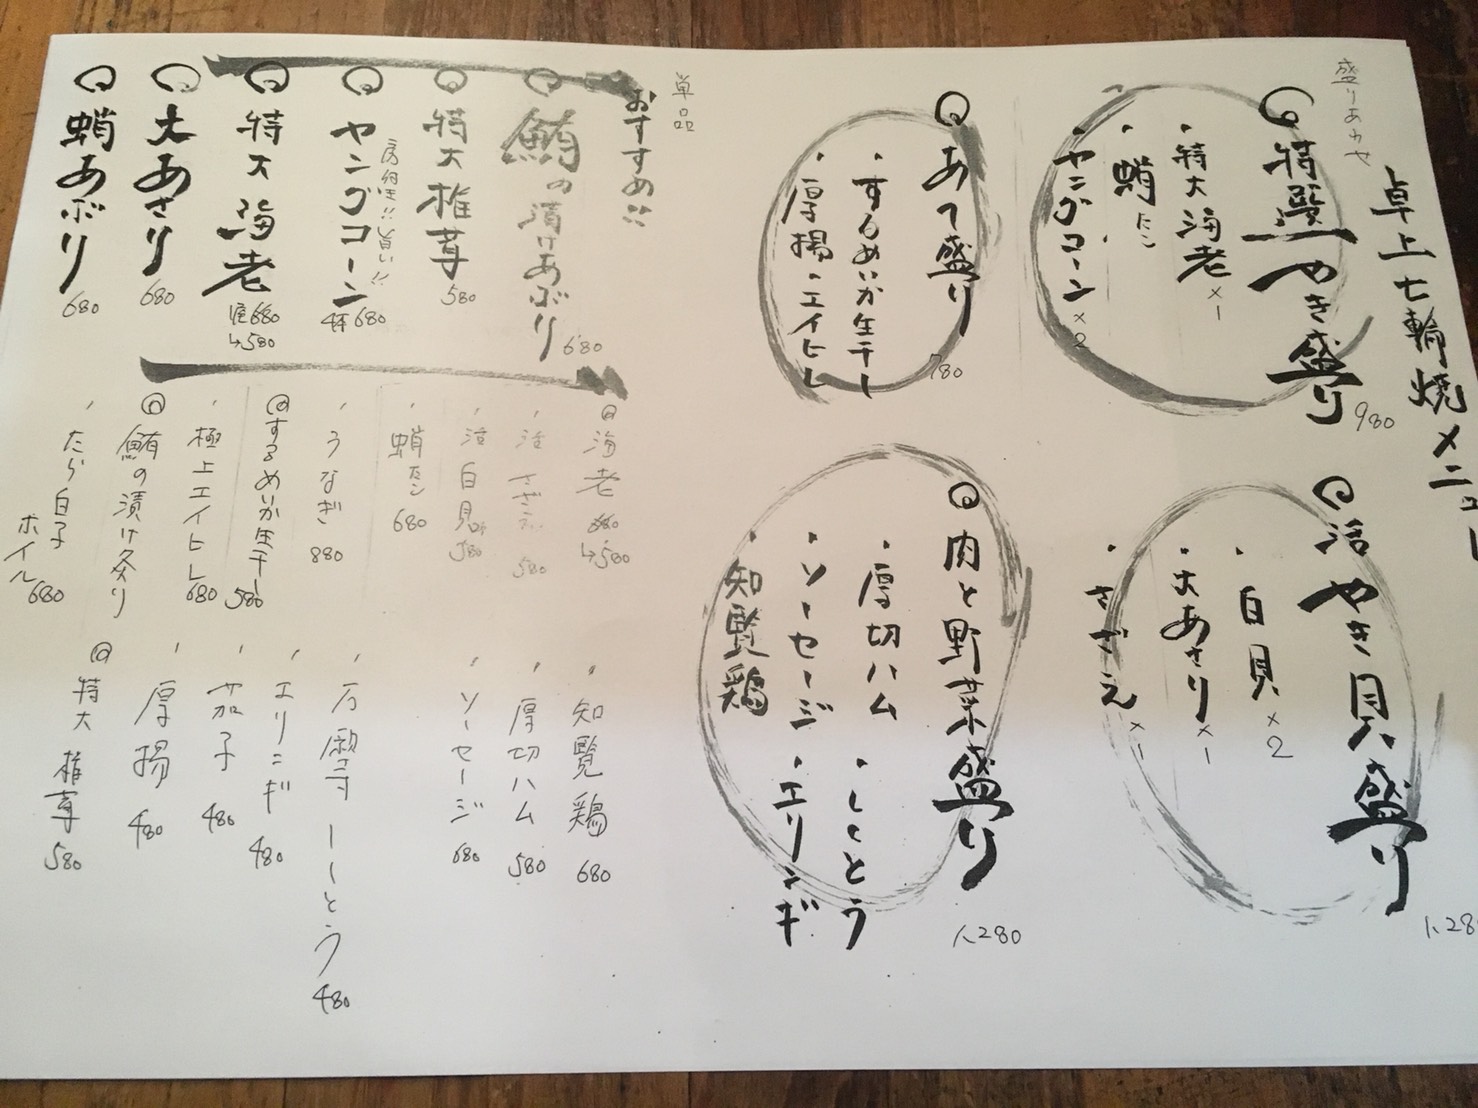 卓上七輪焼メニュー
盛りあわせ
特選やき盛り 980
・特大海老×1
・蛸たこ
・ヤングコーン×2
あて盛り 780
・するめいか生干し
・厚揚・エイヒレ
活やき貝盛り 1,280
・白貝×2
・大あさり×1
・さざえ×1
肉と野菜盛り 1,280
・厚切ハム・ししとう
・ソーセージ・エリンギ
・知覧鶏
単品
おすすめ!!
鮪の漬けあぶり 680
特大椎茸 580
ヤングコーン 4本 680
房付生!!旨い!!
特大海老 680
↳580
大あさり 680
蛸あぶり 680
海老 680
↳580
活さざえ 580
活白貝 580
蛸たこ 680
うなぎ 880
するめいか生干し 580
極上エイヒレ 680
鮪の漬け炙り
たら白子ホイル 680
知覧鶏 680
厚切ハム 580
ソーセージ 680
万願寺ししとう 480
エリンギ 480
茄子 480
厚揚 480
特大椎茸 580